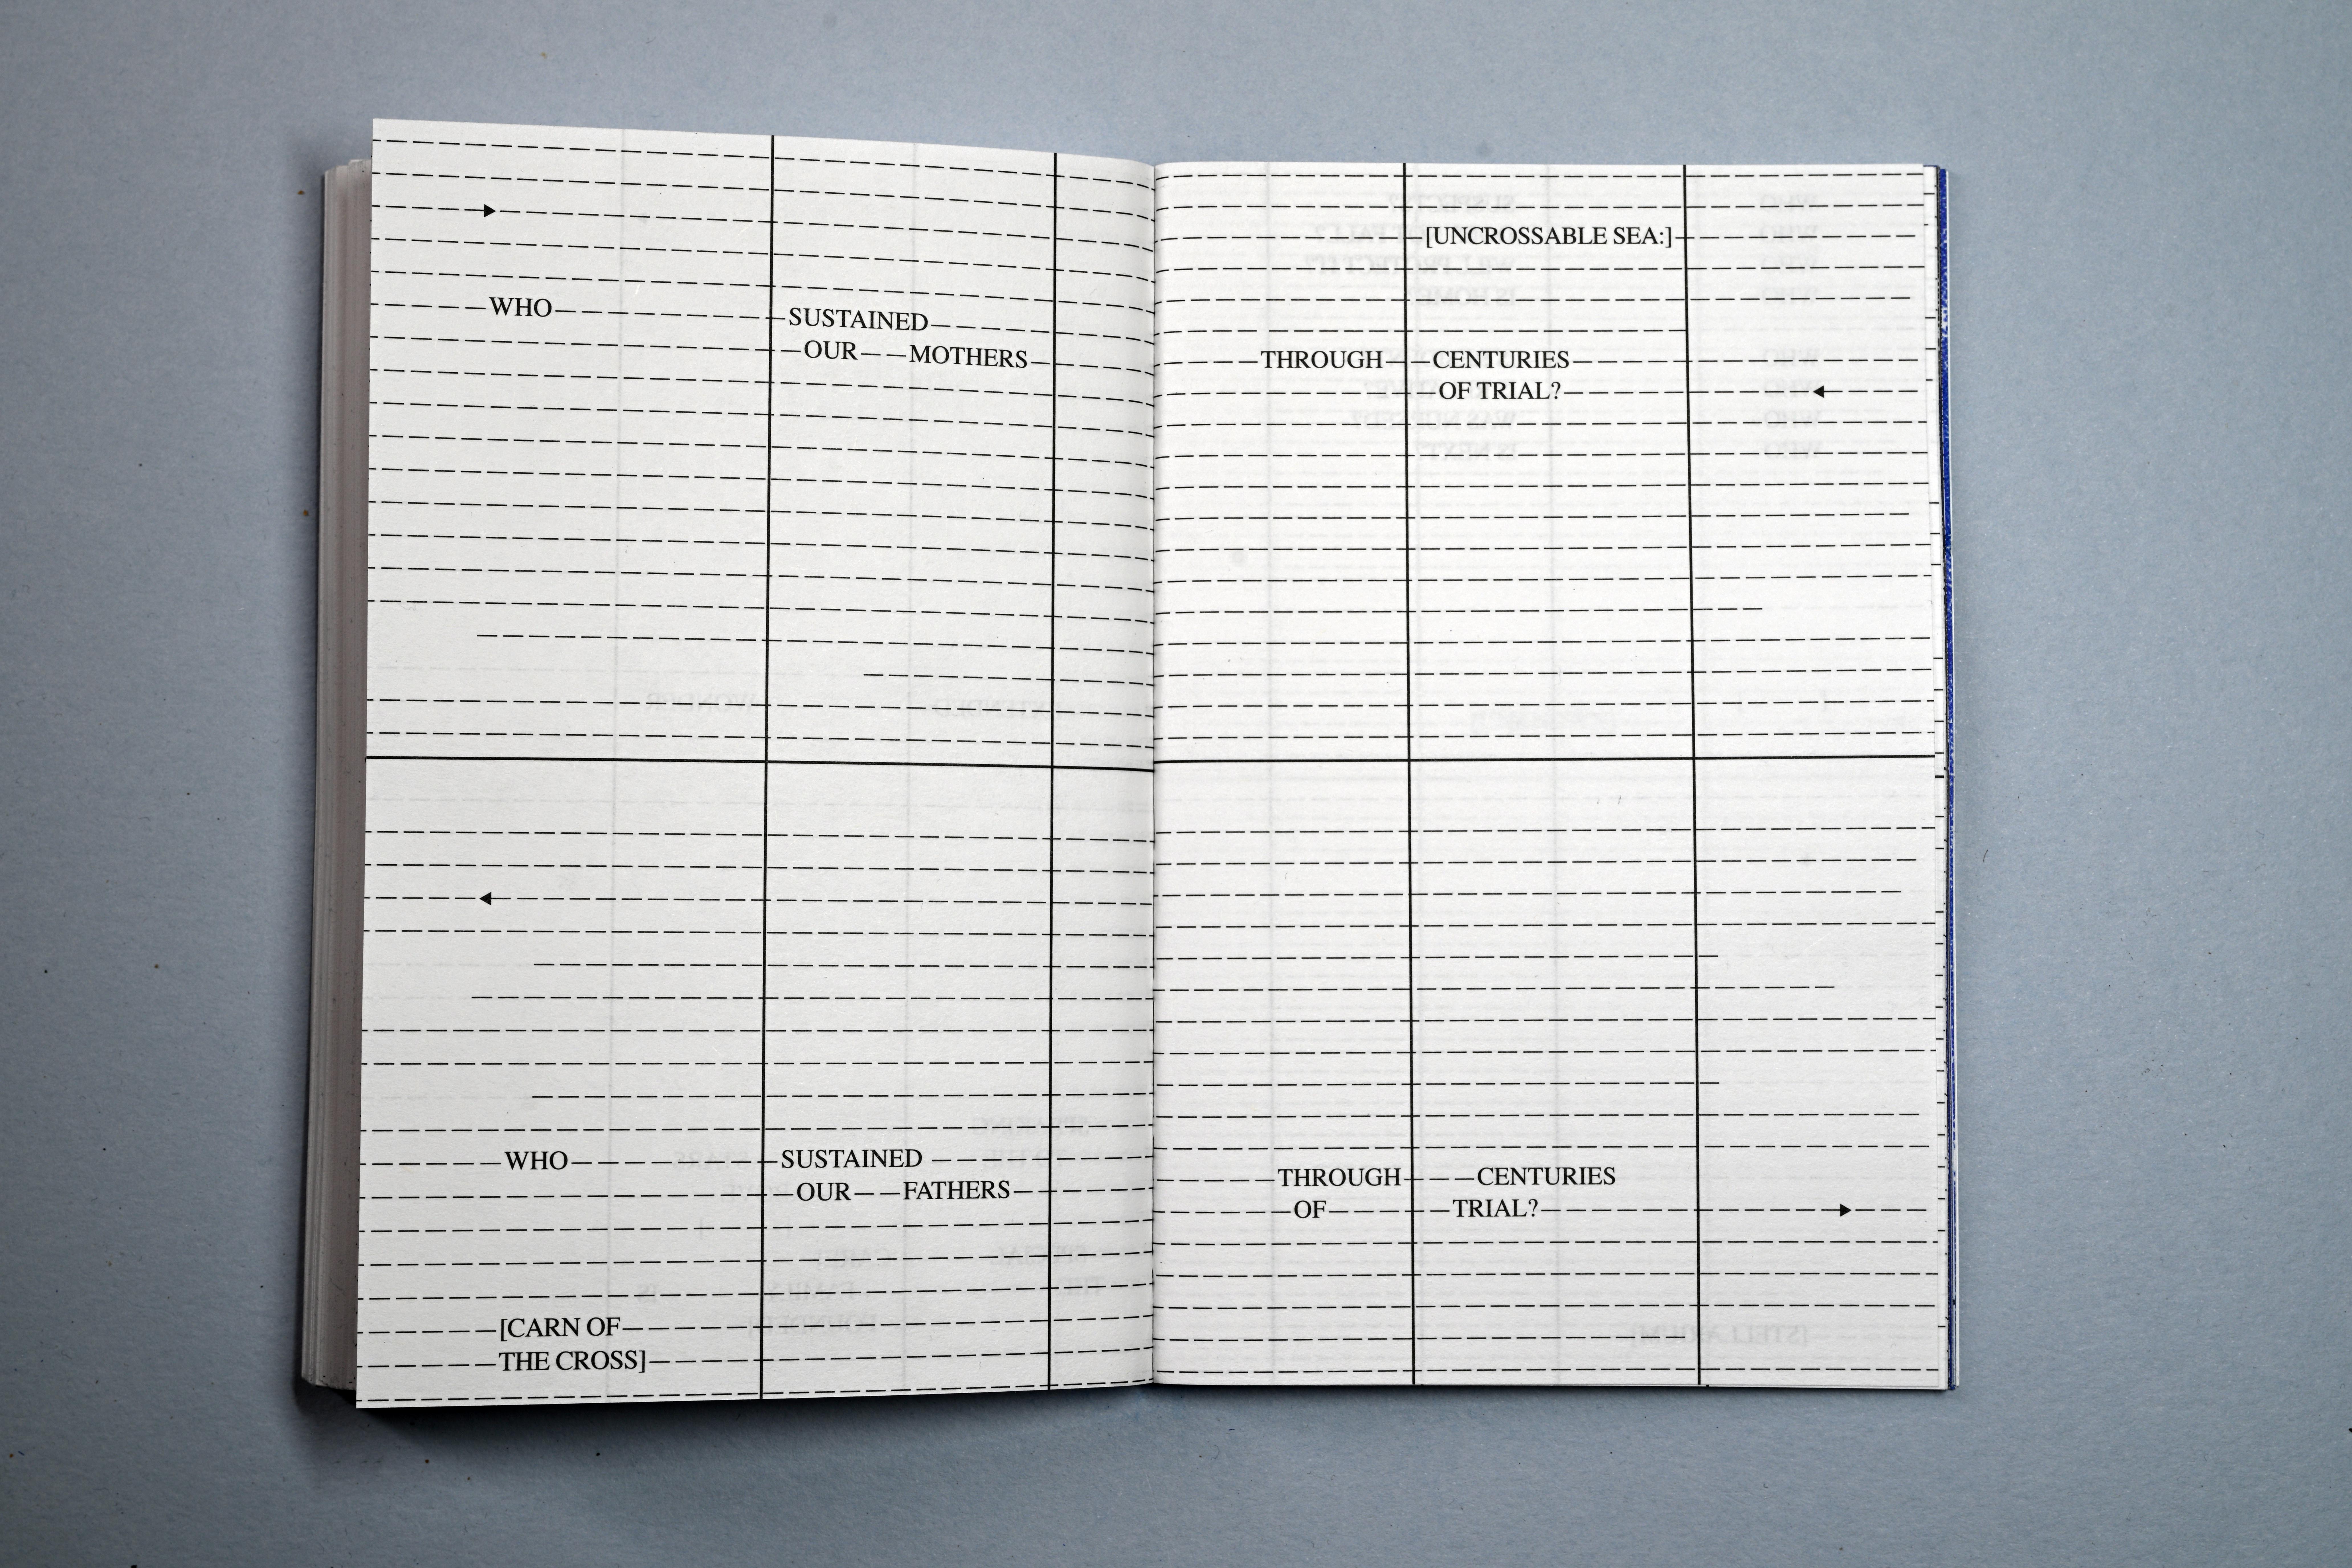 [UNCROSSABLE SEA:]
WHO SUSTAINED
OUR MOTHERS
THROUGH CENTURIES
OF TRIAL?
WHO SUSTAINED
OUR FATHERS
THROUGH CENTURIES
OF TRIAL?
[CARN OF
THE CROSS]